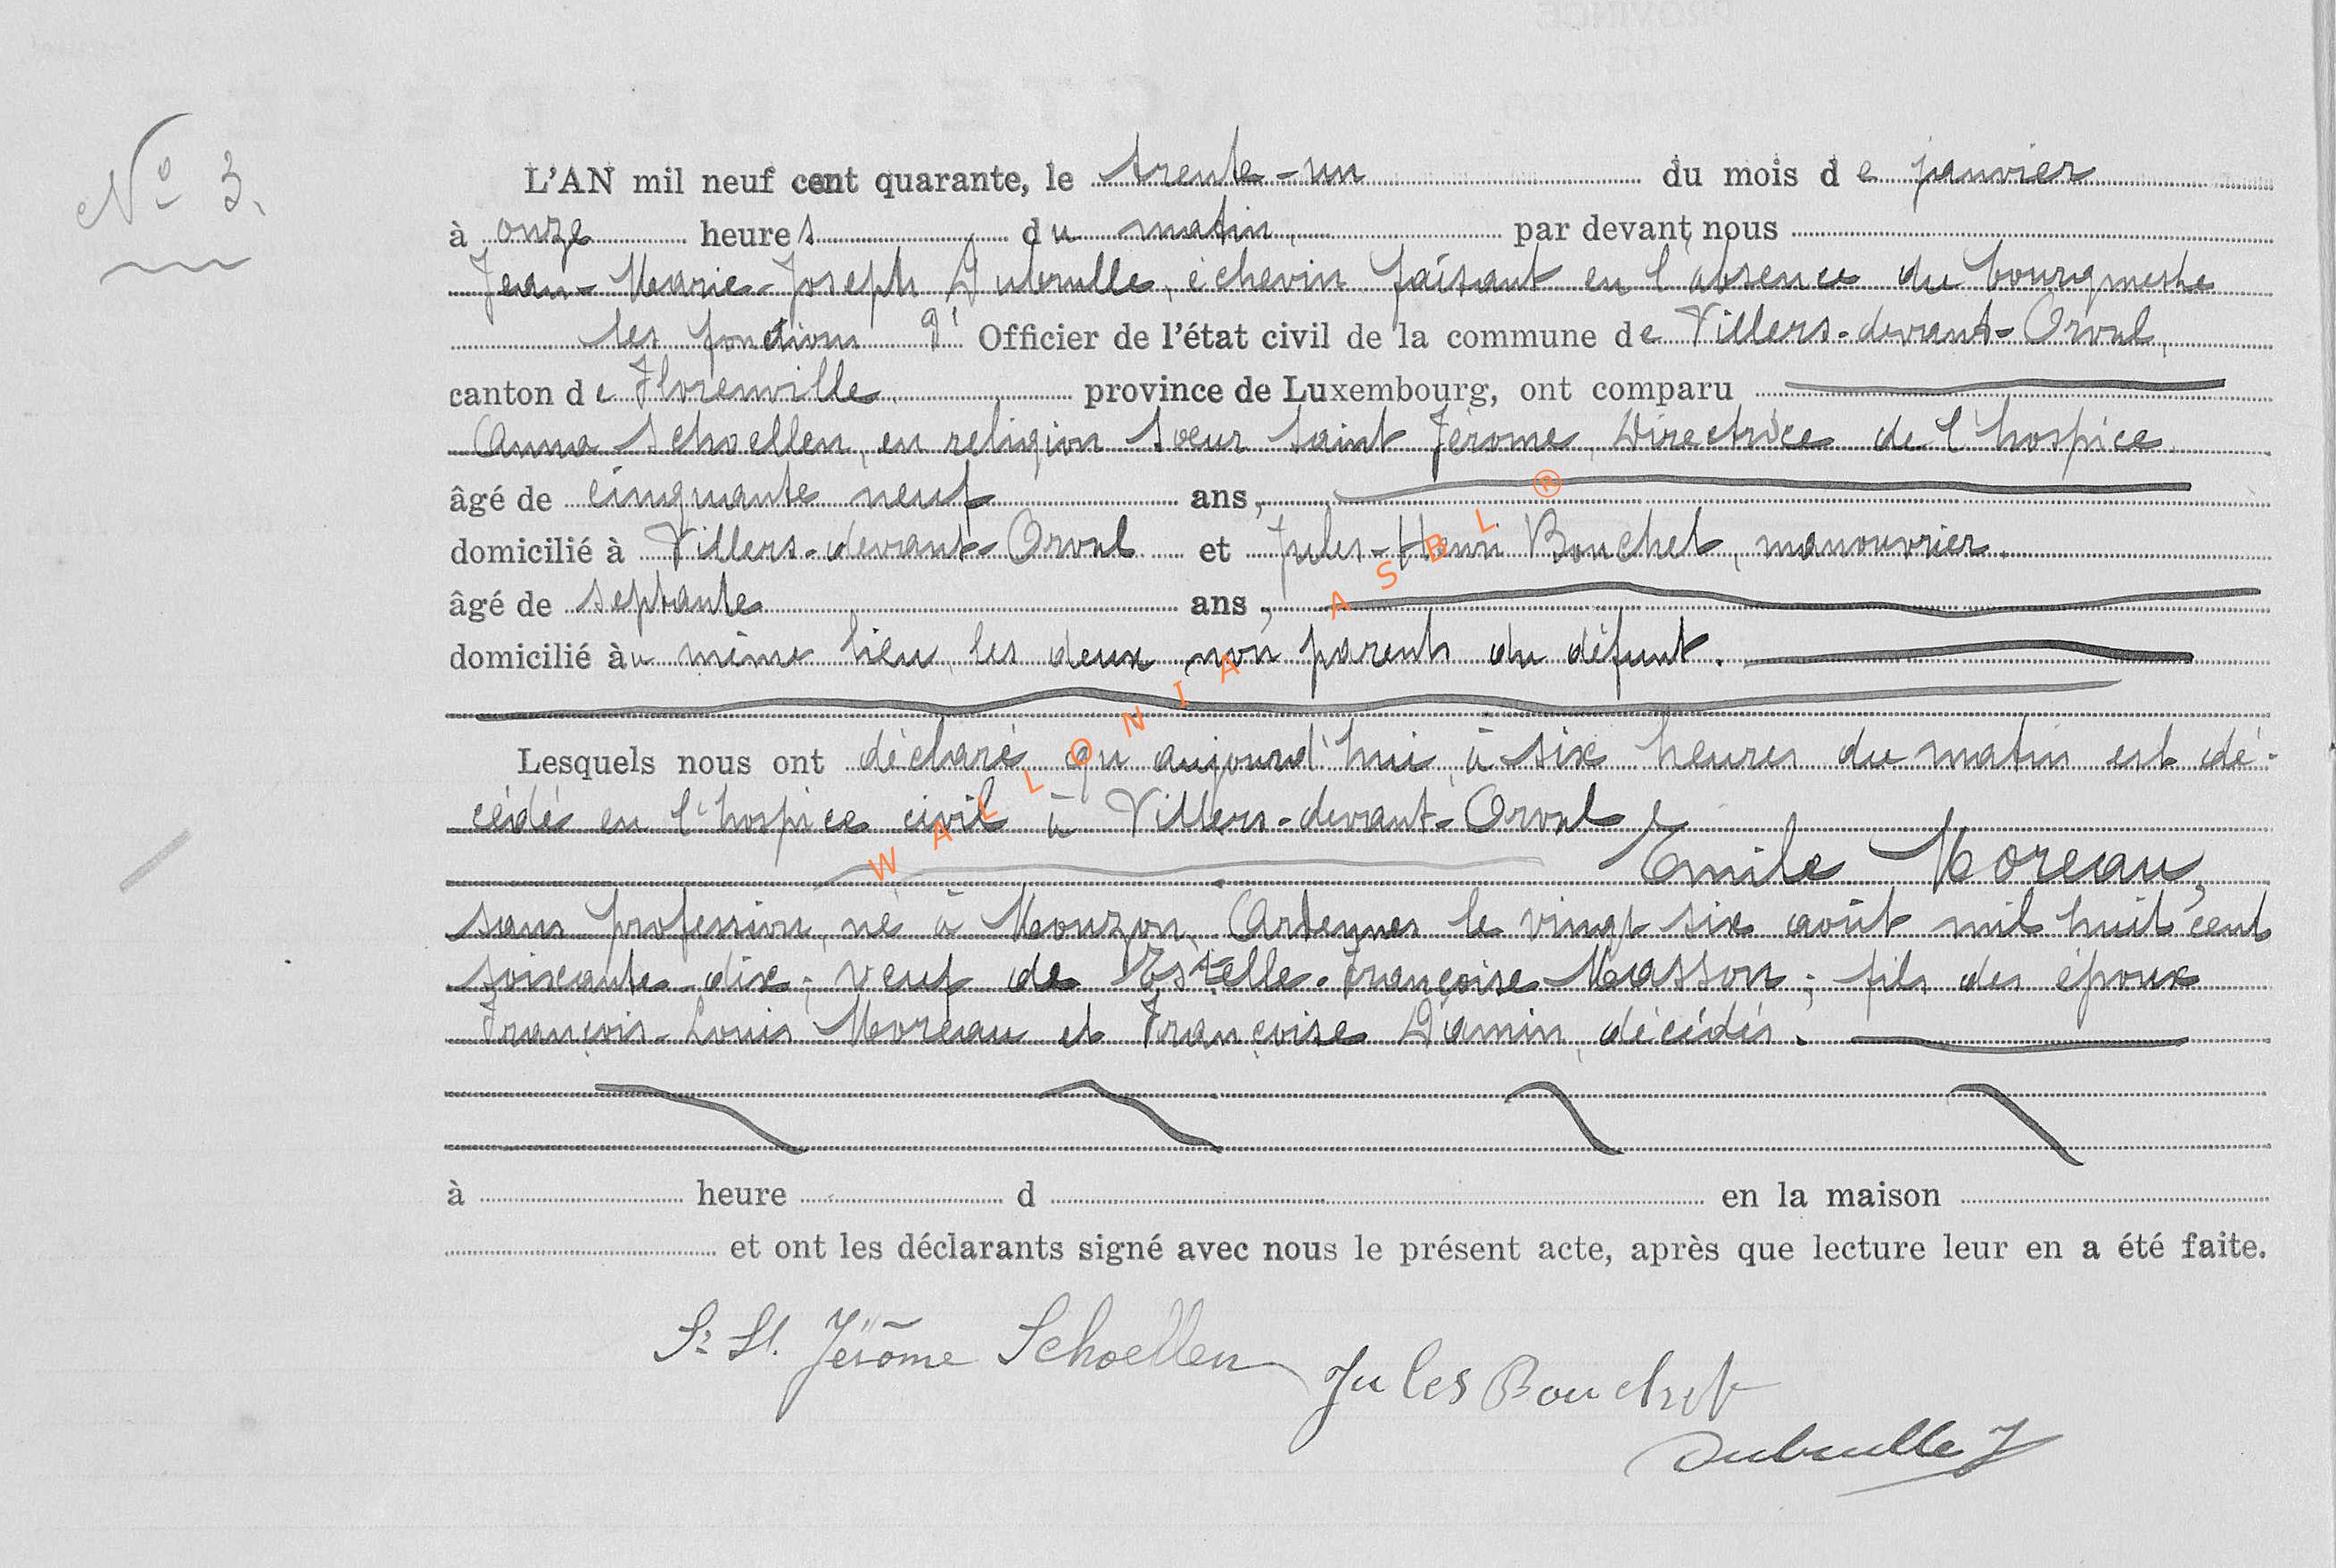 N° 3.
L'AN mil neuf cent quarante, le trente-un du mois de janvier
à onze heures du matin, par devant nous
Jean-Marie-Joseph Dubrulle, échevin faisant en l'absence du bourgmestre
les fonctions d' Officier de l'état civil de la commune de Villers-devant-Orval,
canton de Florenville, province de Luxembourg, ont comparu
Anna Schoellen, en religion Sœur Saint Jérome, Directrice de l'hospice
âgé de cinquante neuf ans,
domicilié à Villers-devant-Orval et Jules-Henri Bouchet, manouvrier.
âgé de septante ans,
domicilié àu même lieu, les deux non parents du défunt.
Lesquels nous ont déclaré qu'aujourd'hui, à six heures du matin est dé-
cédé en l'hospice civil à Villers-devant-Orval
Emile Moreau,
sans profession, né à Mouzon, Ardennes le vingt six août mil huit cent
soixante-dix; veuf de Estelle-Françoise Masson; fils des époux
François-Louis Moreau et Françoise Damin, décédés.
à heure d en la maison
et ont les déclarants signé avec nous le présent acte, après que lecture leur en a été faite.
Sr St. Jérôme Schoellen
Jules Bouchet
Dubrulle J
WALLONIA ASBL ®